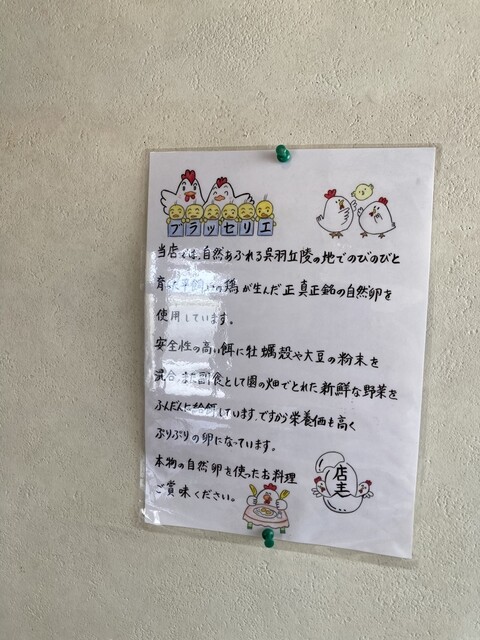 ブラッセリエ
当店では、自然あふれる呉羽丘陵の地でのびのびと
育った平飼いの鶏が生んだ正真正銘の自然卵を
使用しています。
安全性の高い餌に牡蠣殻や大豆の粉末を
混合、また副食として園の畑でとれた新鮮な野菜を
ふんだんに給餌しています。ですから栄養価も高く
ぷりぷりの卵になっています。
本物の自然卵を使ったお料理
ご賞味ください。
店主